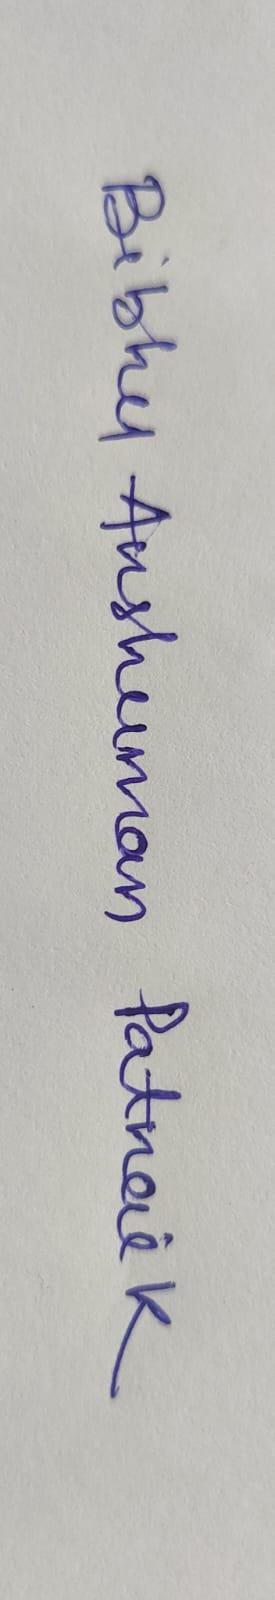 Bibhu Anshuman Patnaik